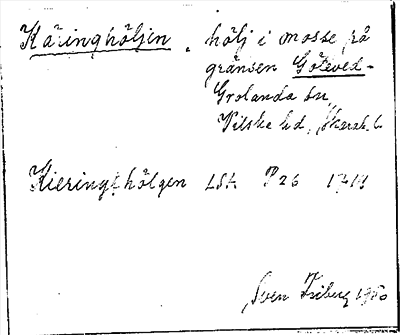 Käringhöljen, hölj i mosse på
gränsen Göteved -
Grolanda sn,
Vilske hd, Skarab. l.
Kieringehölgen LSA P 26 1714
Sven Friberg 1950